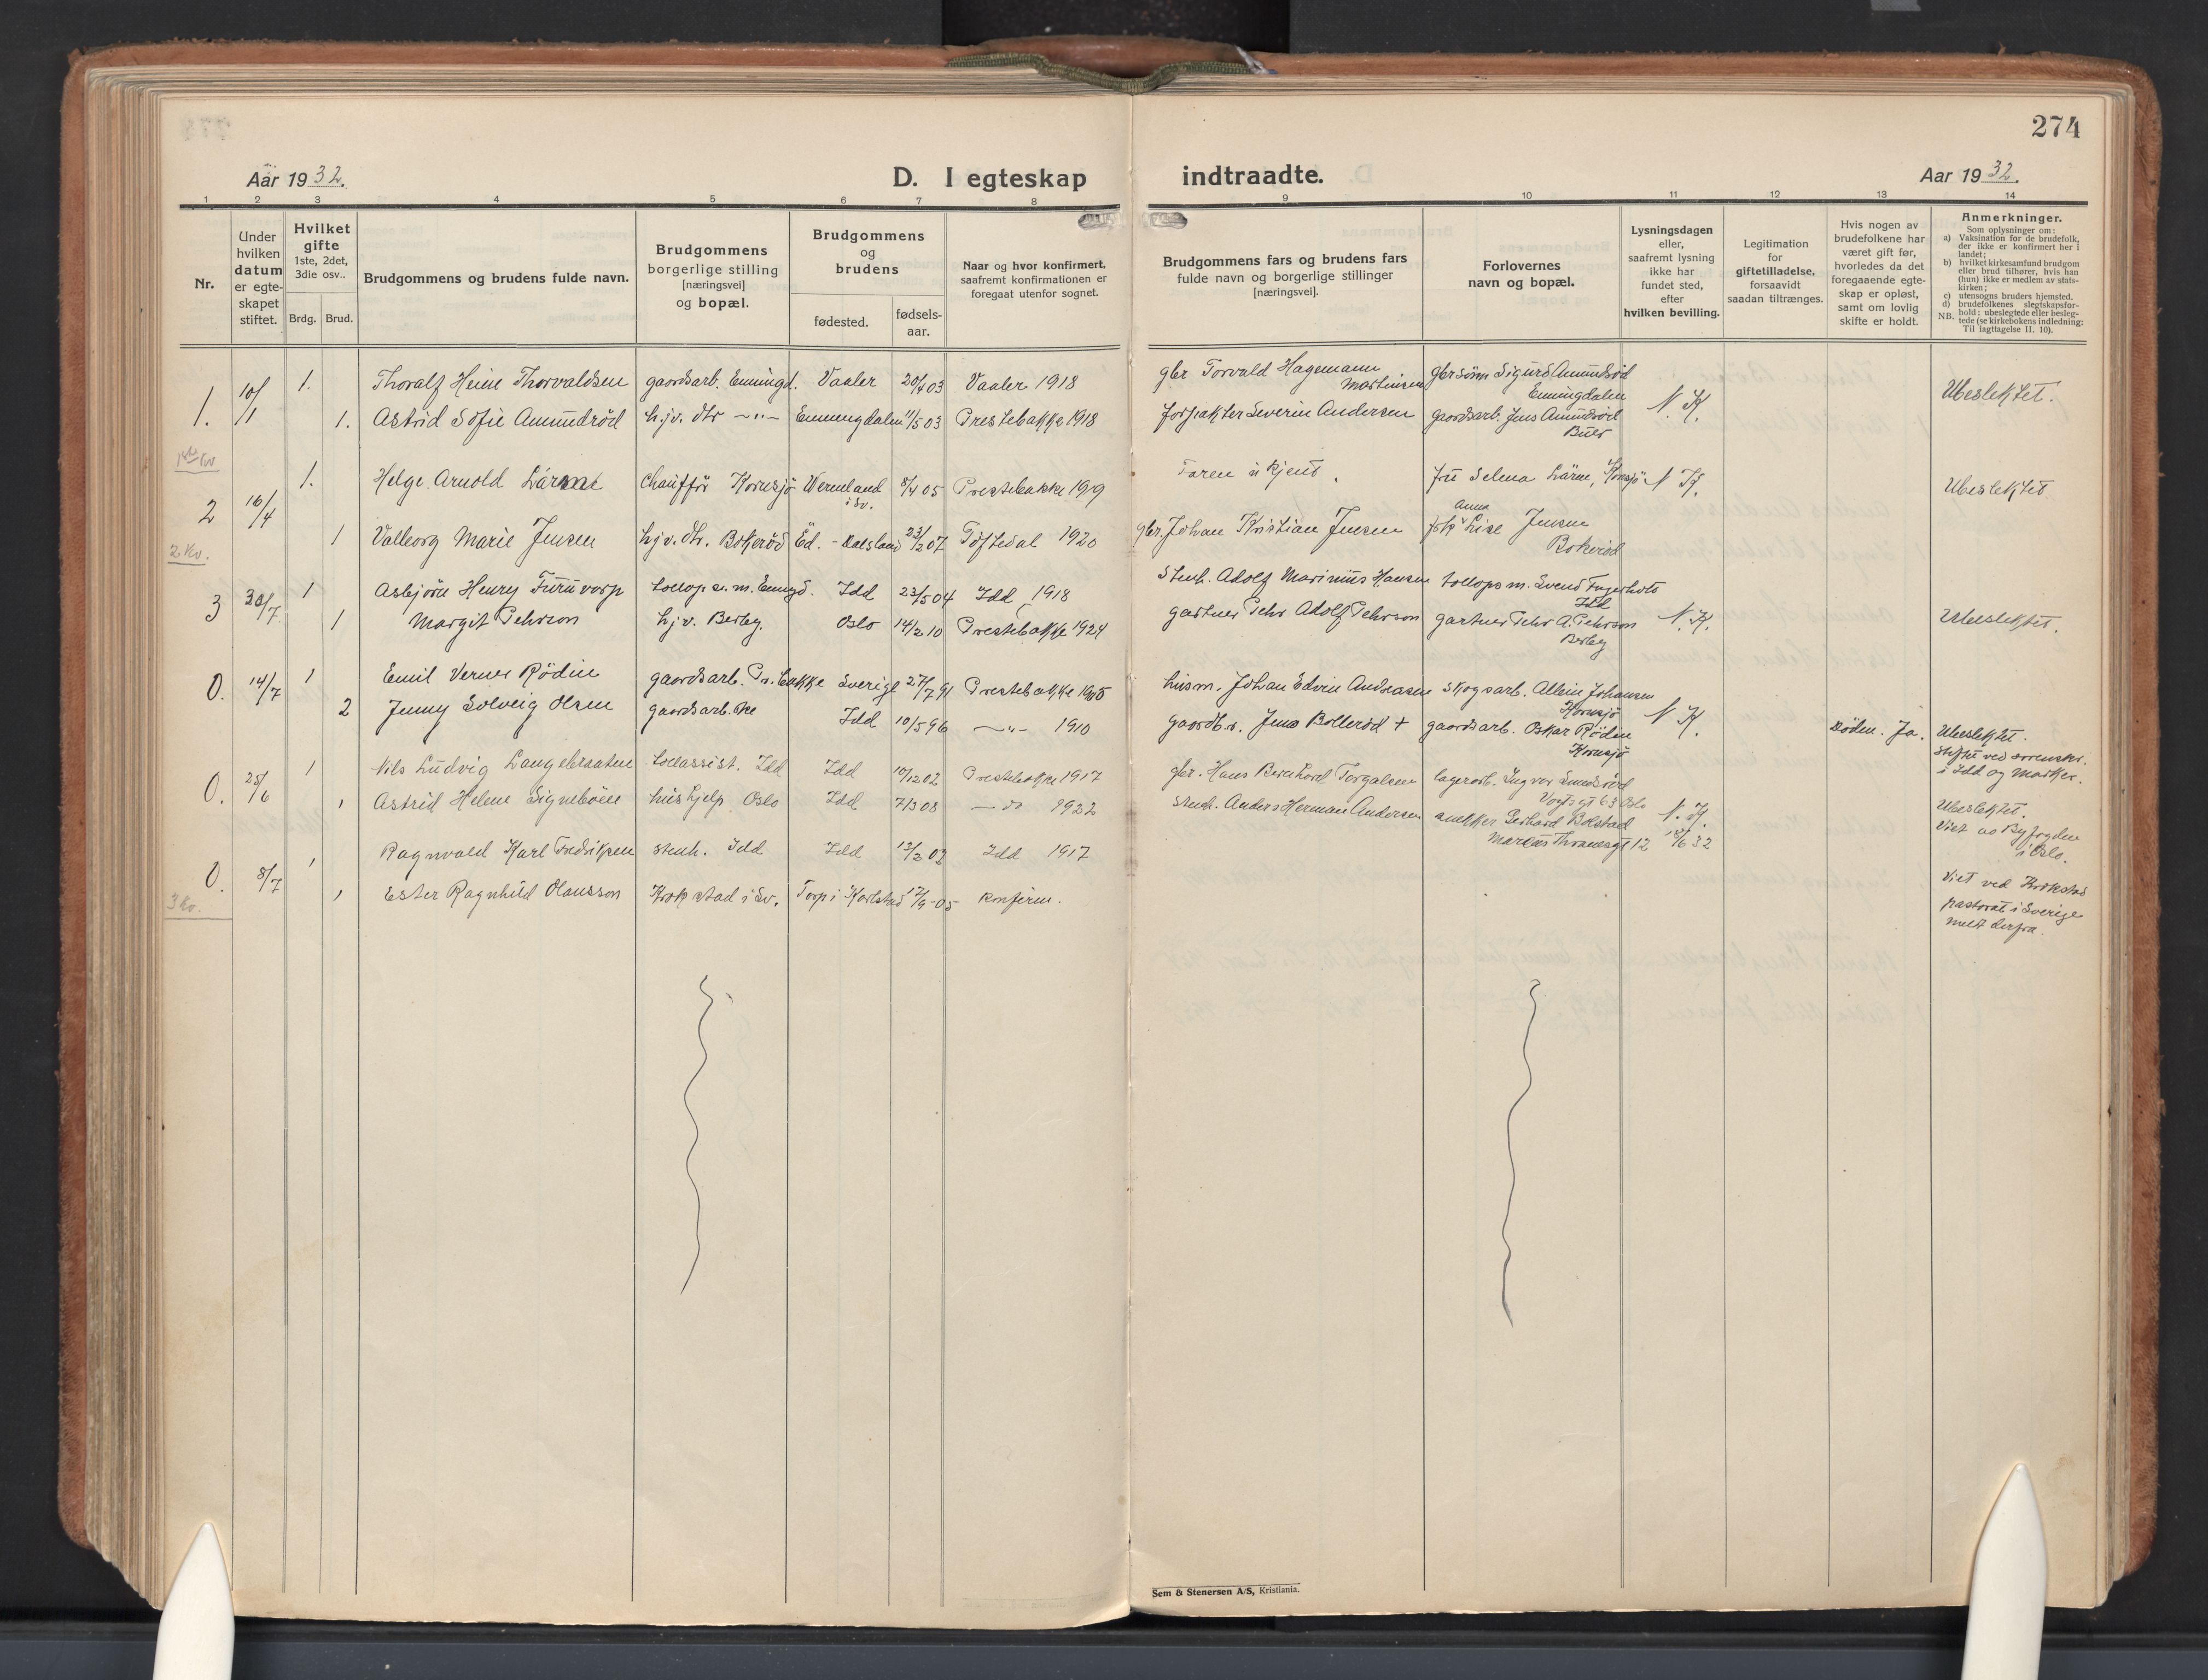 274
Aar 1932.
D. I egteskap indtraadte.
Aar 1932.
1 2 3 4 5 6 7 8 9 10 11 12 13 14
Nr.
Under hvilken datum er egte- skapet stiftet.
Hvilket gifte 1ste, 2det, 3die osv..
Brdg. Brud.
Brudgommens og brudens fulde navn.
Brudgommens borgerlige stilling [næringsvei] og bopæl.
Brudgommens og brudens
fødested.
fødsels- aar.
Naar og hvor konfirmert,
saafremt konfirmationen er
foregaat utenfor sognet.
Brudgommens fars og brudens fars
fulde navn og borgerlige stillinger
[næringsvei].
Forlovernes
navn og bopæl.
Lysningsdagen
eller,
saafremt lysning
ikke har
fundet sted,
efter
hvilken bevilling.
Legitimation
for
giftetilladelse,
forsaavidt
saadan tiltrænges.
Hvis nogen av
brudefolkene har
været gift før,
hvorledes da det
foregaaende egte-
skap er opløst,
samt om lovlig
skifte er holdt.
Anmerkninger.
Som oplysninger om:
a) Vaksination for de brudefolk,
der ikke er konfirmert her i
landet;
b) hvilket kirkesamfund brudgom
eller brud tilhører, hvis han
(hun) ikke er medlem av stats-
kirken;
c) utensogns bruders hjemsted.
d) brudefolkenes slegtskapsfor-
hold: ubeslegtede eller besleg-
tede (se kirkebokens indledning:
NB. Til iagttagelse II, 10).
1. 10/1 1. Thoralf Heine Thorvaldsen gaardsarb. Enningd. Vaaler 20/4 03 Vaaler 1918 gbr Torvald Hagemann Martinsen gbrsönn Sigurd Amundsöd Enningdalen N. K. Ubeslektet.
1. Astrid Sofie Amundröd hjv. dtr —"— Enningdalen 11/5 03 Prestebakke 1918 forpakter Severin Andersen gaardsarb. Jens Amundröd Buer
2 16/4 1. Helge Arnold Lärme chaufför Kornsjö Wermland i Sv. 8/4 05 Prestebakke 1919 Faren ukjent. fru Selma Lärm, Kornsjö N K. Ubeslektet
1 Valborg Marie Jensen hjv. dtr. Bokeröd Ed. - Dalsland 23/2 07 Töftedal 1920 gbr. Johan Kristian Jensen Anna Lise Jensen Bokeröd
2 Kv.
3 30/7 1 Asbjörn Henry Furuvorp tollop.s.m. Enngd. Idd 23/5 04 Idd 1918 Stenh. Adolf Marinius Hansen tollops m. Svend Fagerholt Idd N. K. Ubeslektet.
1 Margit Pehrson hjv. Berby. Oslo 14/2 10 Prestebakke 1924 gartner Pehr Adolf Pehrson gartner Pehr A. Pehrson Berby
0. 14/7 1 Emil Verner Rödin gaardsarb. Pr.bakke Sverige 27/7 91 Prestebakke husm. Johan Edvin Andreasen skogsarb. Albin Johansen Kornsjö N K.
2 Jenny Solveig Olsen gaardsarb.ske Idd 10/5 96 —"— 1910 gaardbr. Jens Bolleröd + gaardsarb. Oskar Rödin Kornsjö Döden. Ja. Ubeslektet. Stiftet ved sorenskr. i Idd og Marker.
0. 25/6 1 Nils Ludvig Langebraaten tollassist. Idd Idd 17/12 02 Prestebakke 1917 gbr. Hans Bernhard Torgalsen lagerarb. Ingvar Vogtsgt 63 Oslo N. K.
1 Astrid Helene Signebøen hushjelp Oslo Idd 7/3 08 1922 Stenh. Anders Herman Andersen snekker Gerhard Bolstad Marcus Thranesgt 12 18/6 32 Ubeslektet. Viet av Byfogden i Oslo.
0. 8/7 1 Ragnvald Karl Fredriksen stenh. Idd Idd 13/2 02 Idd 1917
1 Ester Ragnhild Olausson Krokstad i Sv. Torp i Karlstad 17/9-05 konfirm. Viet ved Krokstad pastorat i Sverige melt derfra.
3 Kv.
Sem & Stenersen A/S, Kristiania.